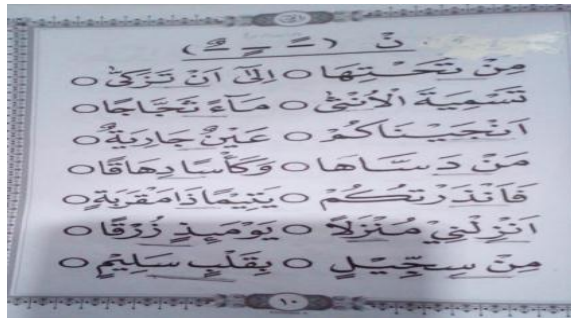 نْ (ـًـ ـٍـ ـٌـ)
مِنْ تَحْتِهَا ○ اِلٰٓى اَنْ تَزَكّٰى ○
تَسْمِيَةَ الْاُنْثٰى ○ مَآءً ثَجَّاجًا ○
اَنْجَيْنَاكُمْ ○ عَيْنٌ جَارِيَةٌ ○
مَنْ دَسَّاهَا ○ وَكَأْسًا دِهَاقًا ○
فَاَنْذَرْتُكُمْ ○ يَتِيْمًا ذَا مَقْرَبَةٍ ○
اَنْزِلْنِيْ مُنْزَلًا ○ يَوْمَىِٕذٍ زُرْقًا ○
مِنْ سِجِّيْلٍ ○ بِقَلْبٍ سَلِيْمٍ ○
١٠